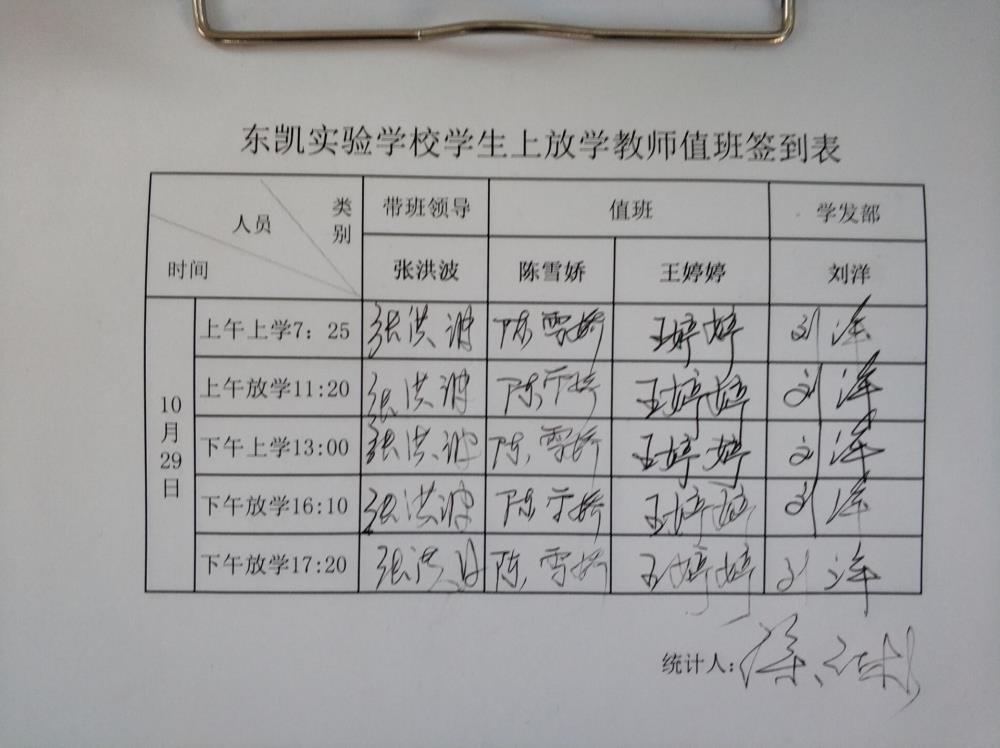 东凯实验学校学生上放学教师值班签到表
人员 类别 带班领导 值班 学发部
时间 张洪波 陈雪娇 王婷婷 刘洋
10月29日
上午上学7：25 张洪波 陈雪娇 王婷婷 刘洋
上午放学11:20 张洪波 陈雪娇 王婷婷 刘洋
下午上学13:00 张洪波 陈雪娇 王婷婷 刘洋
下午放学16:10 张洪波 陈雪娇 王婷婷 刘洋
下午放学17:20 张洪波 陈雪娇 王婷婷 刘洋
统计人: